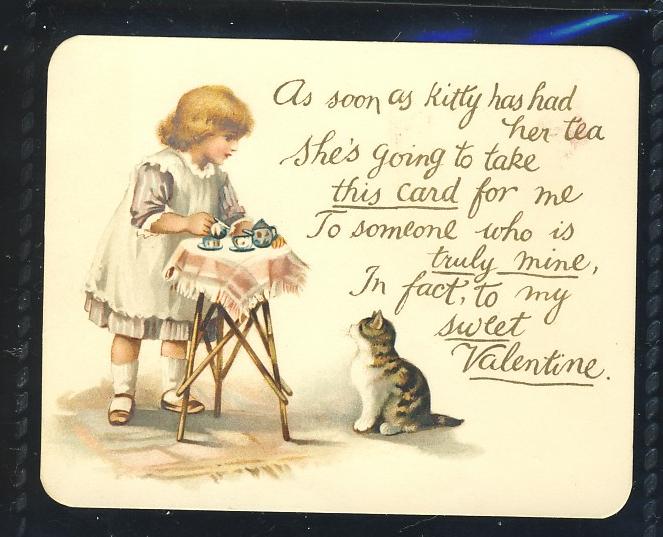 As soon as Kitty has had
her tea
She's going to take
this card for me
To someone who is
truly mine,
In fact, to my
sweet
Valentine.